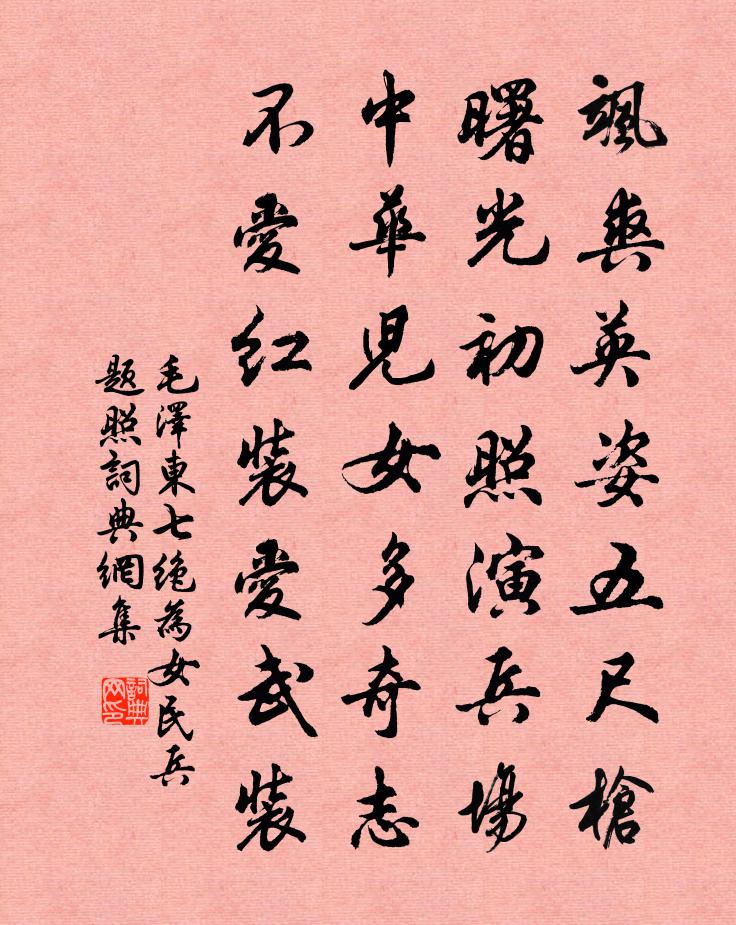 颯爽英姿五尺槍
曙光初照演兵場
中華兒女多奇志
不愛紅裝愛武裝
毛澤東七絕為女民兵
题照詞典網集
詞典网印